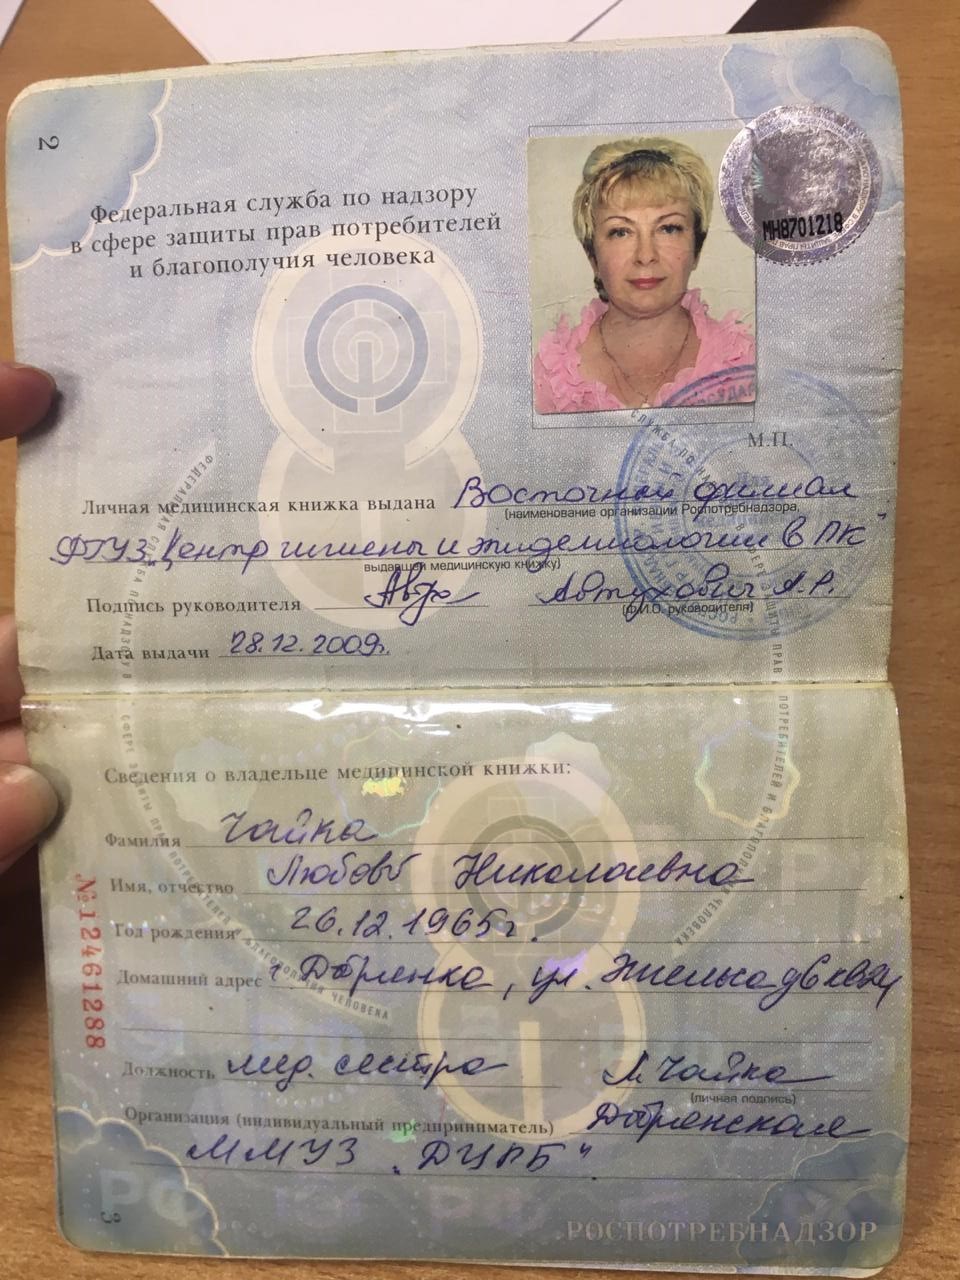 2
Федеральная служба по надзору
в сфере защиты прав потребителей
и благополучия человека
МН8701218
М.П.
Личная медицинская книжка выдана Восточный филиал
(наименование организации Роспотребнадзора,
ФГУЗ „Центр гигиены и эпидемиологии в ПК"
выдавшей медицинскую книжку)
Подпись руководителя Автухович А.Р.
(Ф.И.О. руководителя)
Дата выдачи 28.12.2009г.
Сведения о владельце медицинской книжки:
Фамилия Чайка
Имя, отчество Любовь Николаевна
Год рождения 26.12.1965г.
Домашний адрес г. Добрянка, ул.
Должность мед. сестра Л.Чайка
(личная подпись)
Организация (индивидуальный предприниматель) Добрянская
ММУЗ „ДЦРБ"
№12461288
3
РОСПОТРЕБНАДЗОР